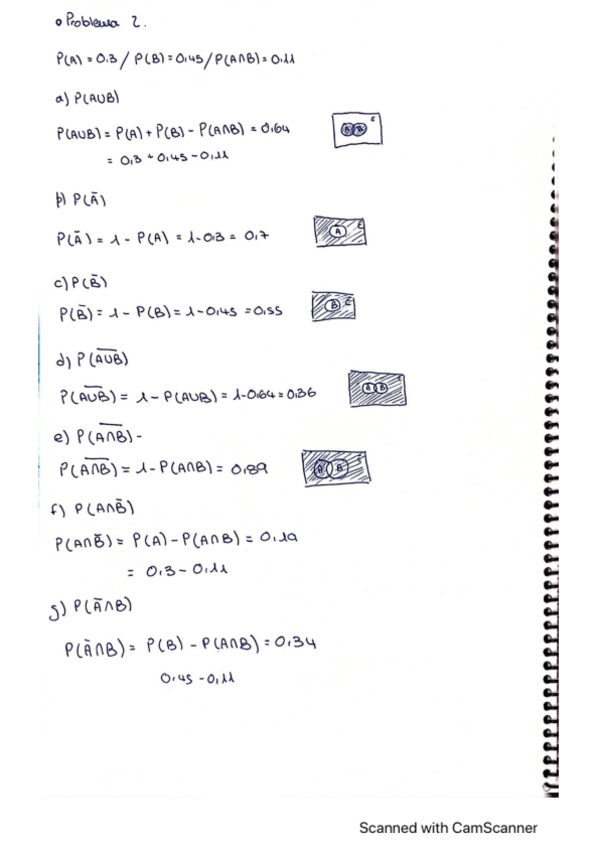 • Problema 2.
P(A) = 0.3 / P(B) = 0.45 / P(A∩B) = 0.11
a) P(A∪B)
P(A∪B) = P(A) + P(B) - P(A∩B) = 0.64
= 0.3 + 0.45 - 0.11
E
A B
b) P(Ā)
P(Ā) = 1 - P(A) = 1 - 0.3 = 0.7
A E
c) P(B̄)
P(B̄) = 1 - P(B) = 1 - 0.45 = 0.55
B E
d) P(A̅∪̅B̅)
P(A̅∪̅B̅) = 1 - P(A∪B) = 1 - 0.64 = 0.36
A B
e) P(A̅∩̅B̅) -
P(A̅∩̅B̅) = 1 - P(A∩B) = 0.89
A B
f) P(A∩B̄)
P(A∩B̄) = P(A) - P(A∩B) = 0.19
= 0.3 - 0.11
g) P(Ā∩B)
P(Ā∩B) = P(B) - P(A∩B) = 0.34
0.45 - 0.11
Scanned with CamScanner